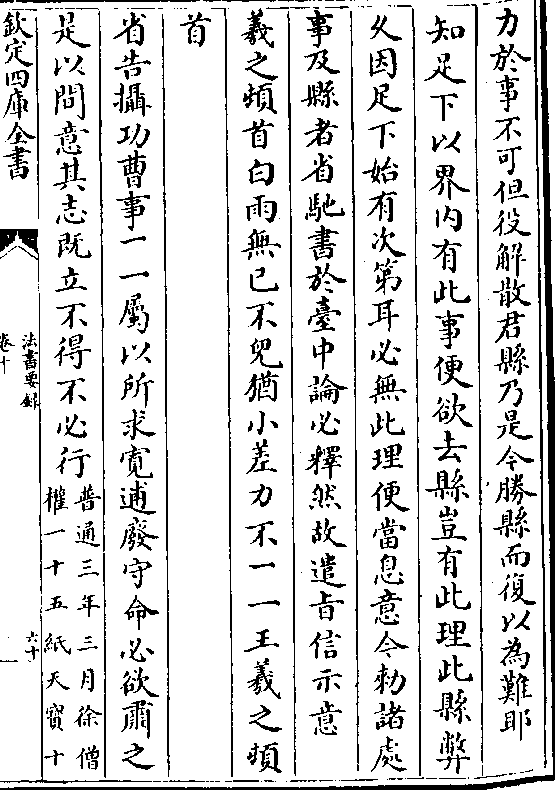 力於事不可但役解散君縣乃是今勝縣而復以為難耶
知足下以界内有此事便欲去縣豈有此理此縣弊
久因足下始有次第耳必無此理便當息意今勑諸處
事及縣者省馳書於臺中論必釋然故遣旨信示意
羲之頓首白雨無已不兒猶小差力不一一王羲之頓
首
省告攝功曹事一一屬以所求寛逋廢守命必欲肅之
足以間意其志既立不得不必行普通三年三月徐僧
權一十五紙天寳十
欽定四庫全書
法書要録
卷十
六十